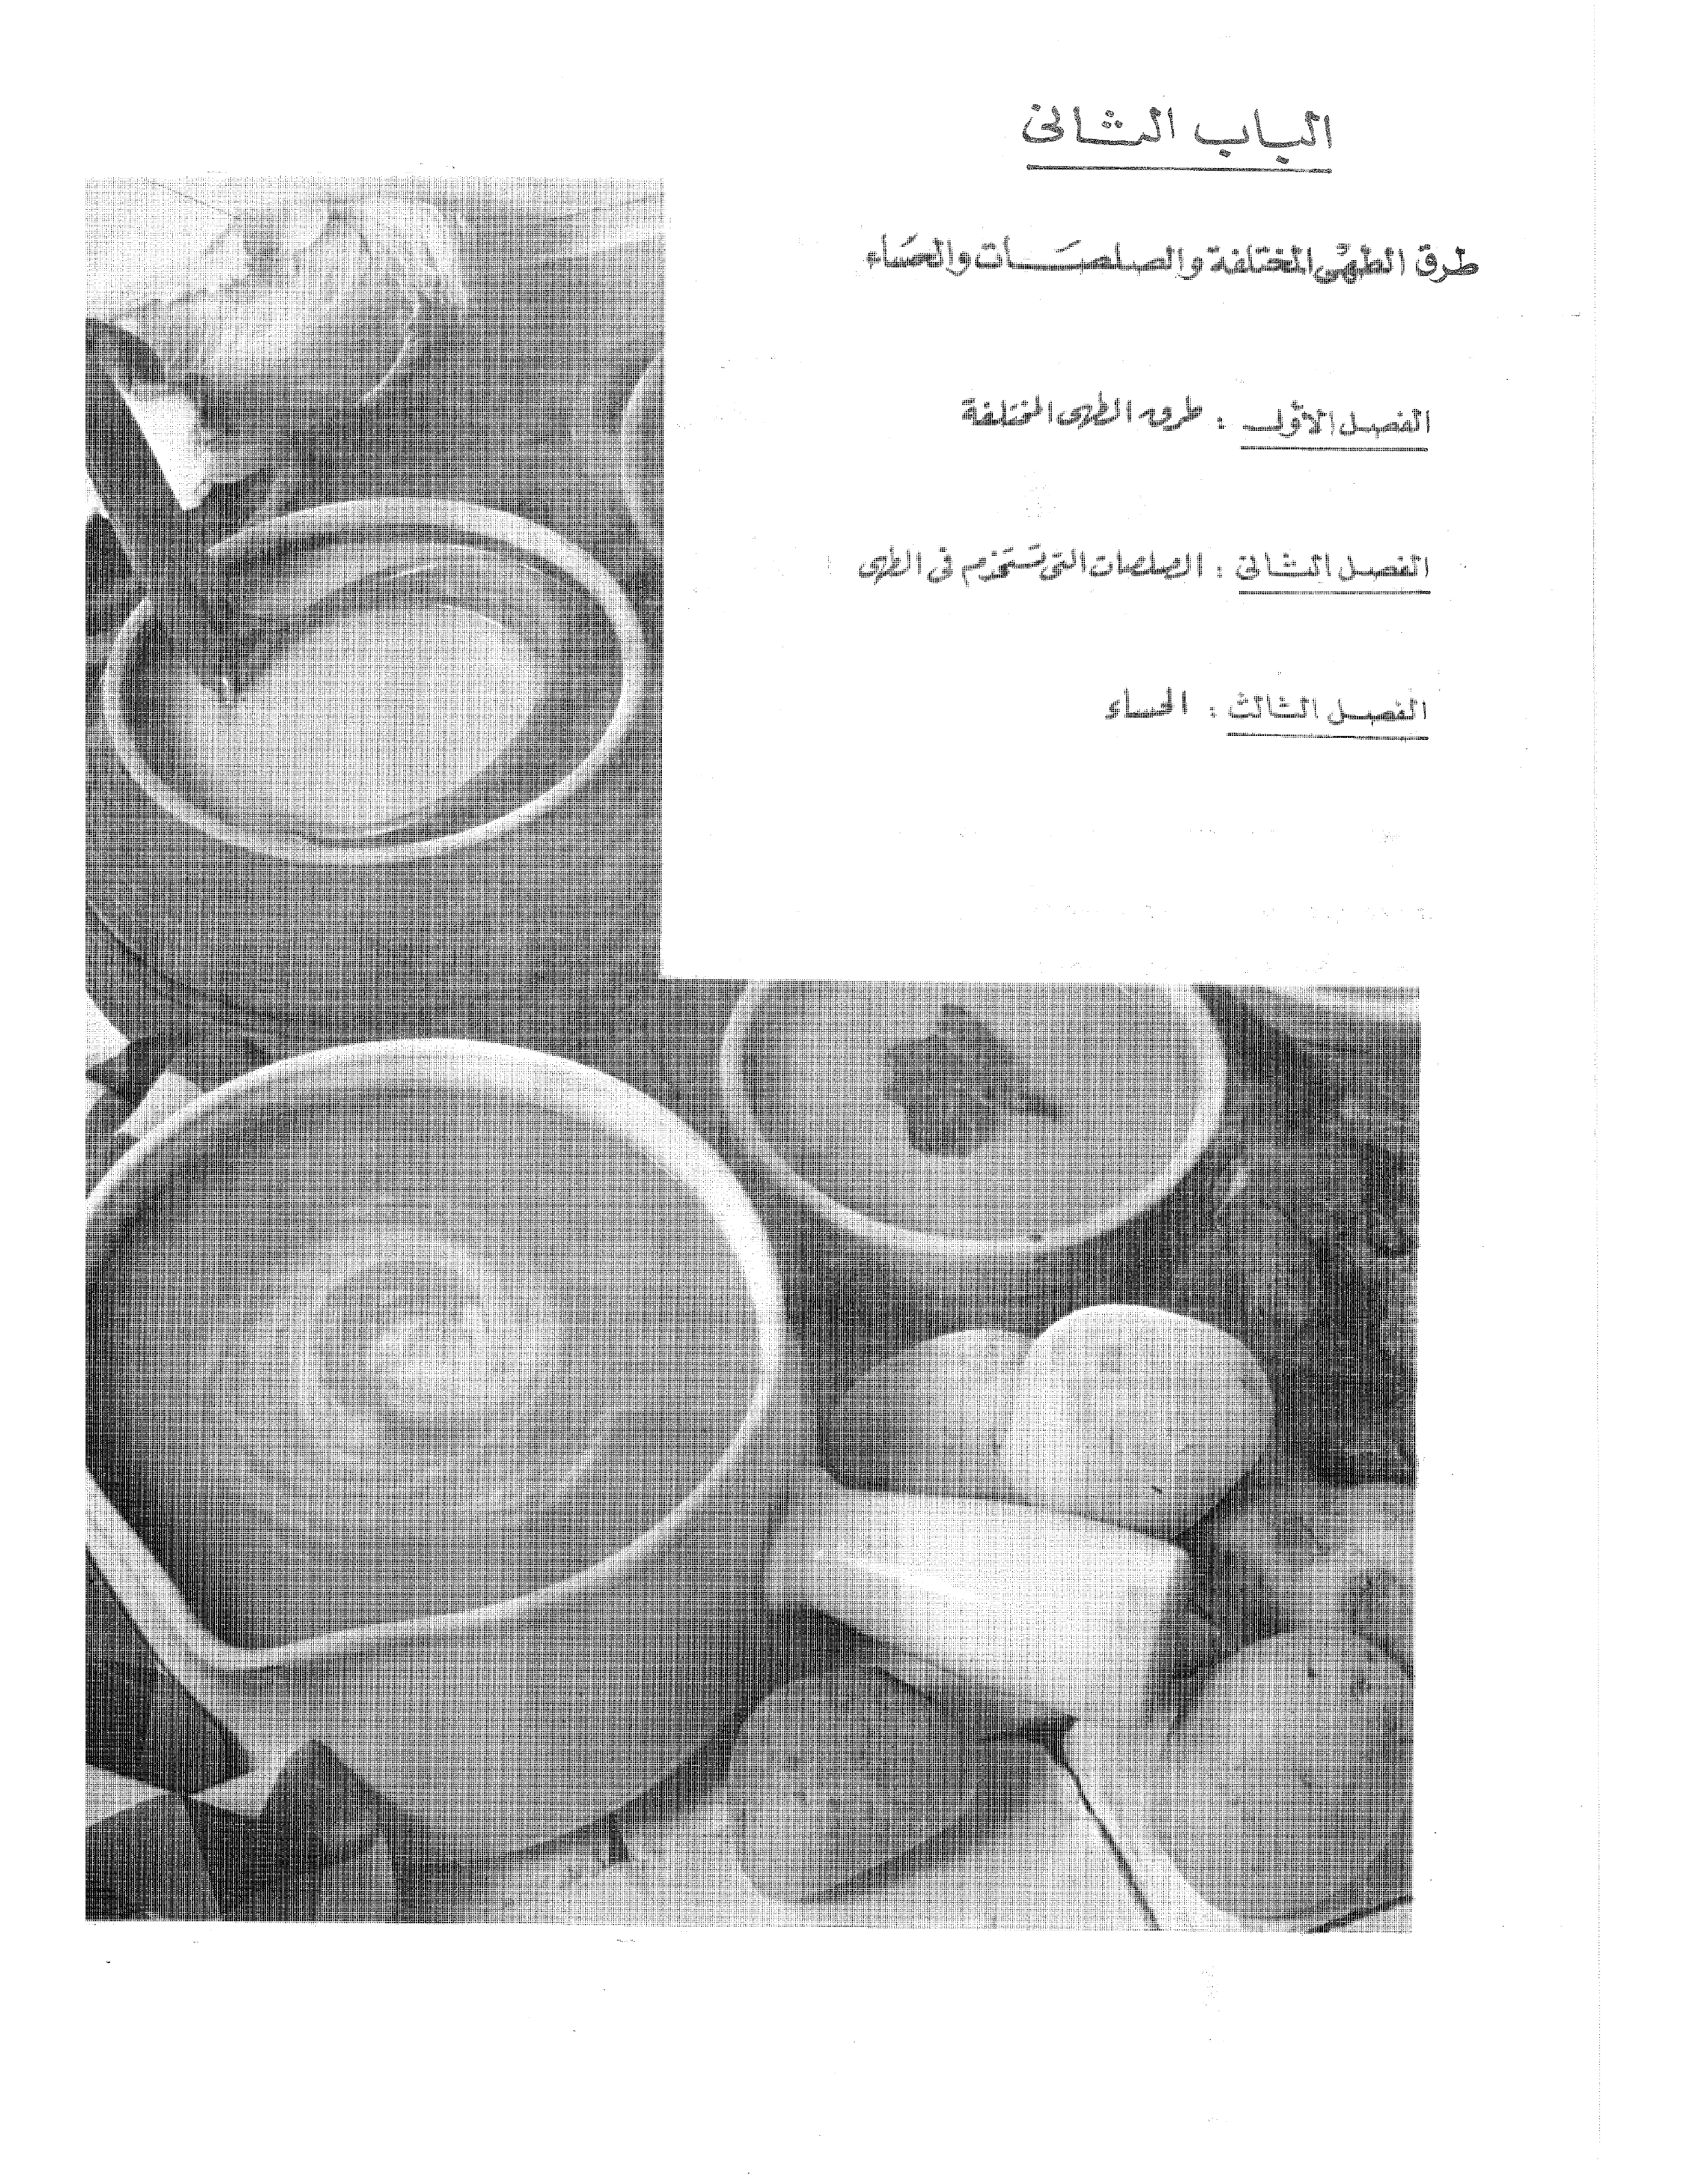 الباب الثانى
طرق الطهى المختلفة والصلصات والحساء
الفصل الأول : طرق الطهى المختلفة
الفصل الثانى : الصلصات التى تستخدم فى الطهى
الفصل الثالث : الحساء